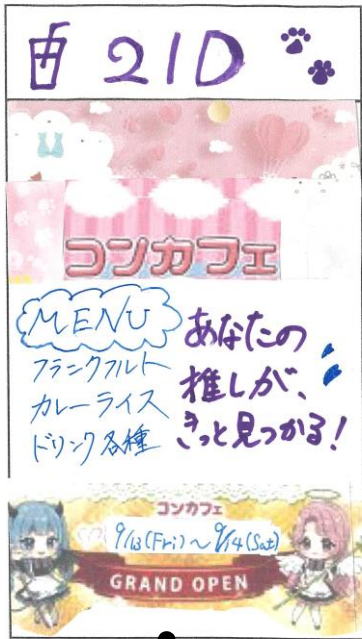 21D
コンカフェ
MENU
フランクフルト
カレーライス
ドリンク各種
あなたの
推しが、
きっと見つかる!
コンカフェ
9/13(Fri)～9/14(Sat)
GRAND OPEN